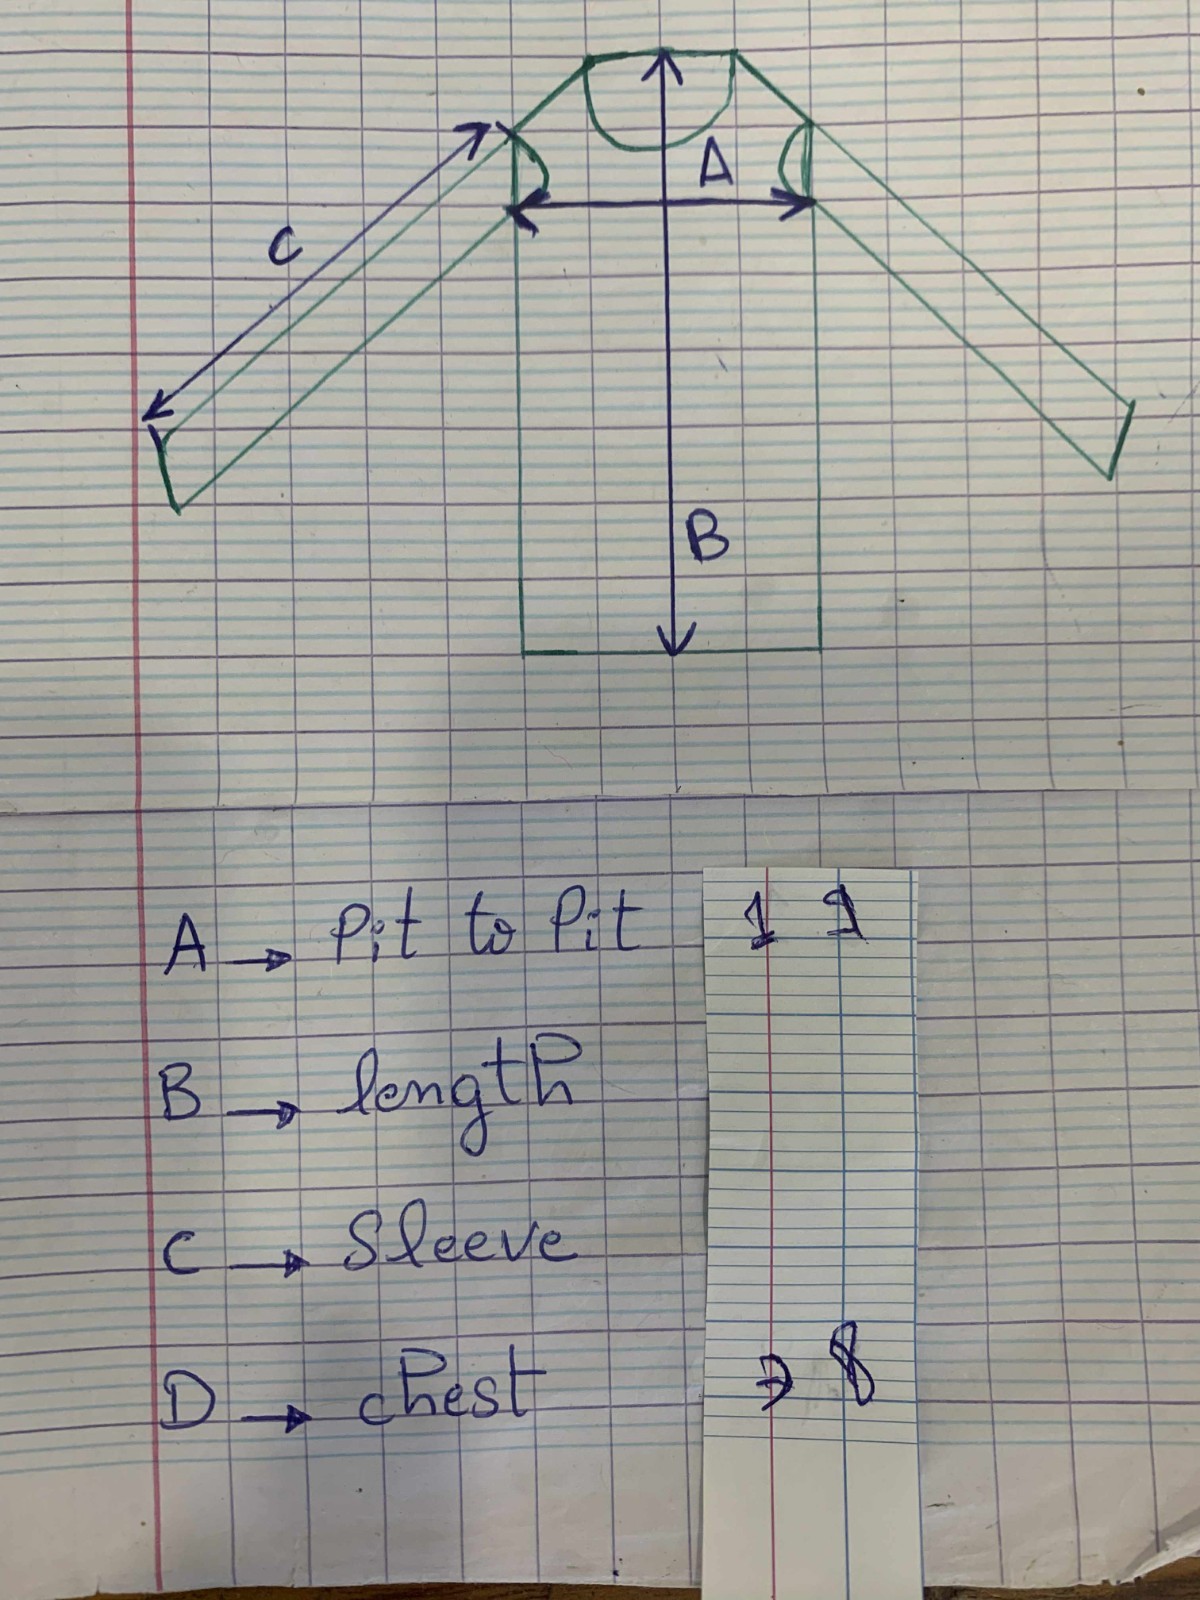 C
A
B
A → Pit to Pit 19
B → length
C → Sleeve
D → chest 38